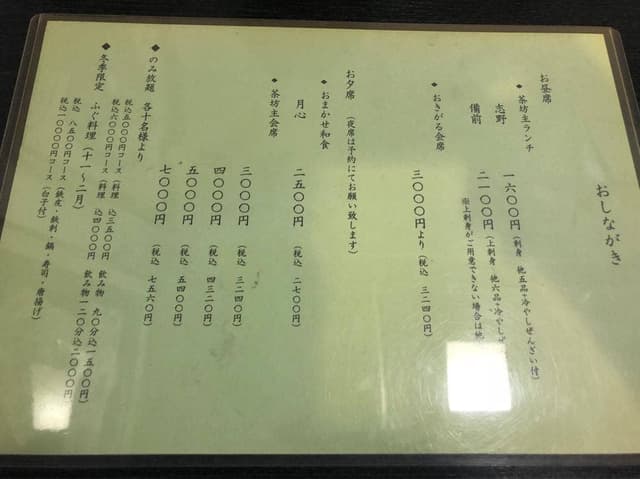 おしながき
お昼席
◆茶坊主ランチ
志野 一六〇〇円(刺身 他五品+冷やしぜんざい付)
備前 二一〇〇円(上刺身 他六品+冷やしぜ
※上刺身がご用意できない場合は他
◆おきがる会席
三〇〇〇円より(税込 三二四〇円)
お夕席 (夜席は予約にてお願い致します)
◆おまかせ和食
月心 二五〇〇円 (税込 二七〇〇円)
◆茶坊主会席
三〇〇〇円 (税込 三二四〇円)
四〇〇〇円 (税込 四三二〇円)
五〇〇〇円 (税込 五四〇〇円)
七〇〇〇円 (税込 七五六〇円)
◆のみ放題 各十名様より
税込五〇〇〇円コース(料理 込三五〇〇円 飲み物 九〇分込一五〇〇円)
税込六〇〇〇円コース(料理 込四〇〇〇円 飲み物一二〇分込二〇〇〇円)
◆冬季限定 ふぐ料理(十一～二月)
税込 八五〇〇円コース(鉄皮・鉄刺・鍋・寿司・唐揚げ)
税込一〇〇〇〇円コース(白子付)